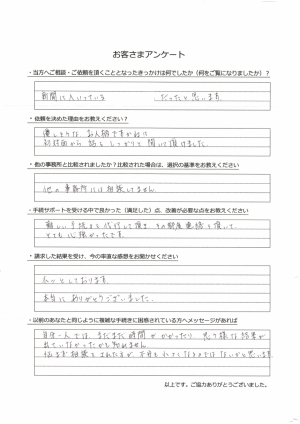 お客さまアンケート
・当方へご相談・ご依頼を頂くこととなったきっかけは何でしたか（何をご覧になりましたか）？
新聞に入っている だったと思います
・依頼を決めた理由をお教えください？
優しそうな お人柄ですかね!!
初対面から 話を しっかりと 聞いて頂けました。
・他の事務所と比較されましたか？比較された場合は、選択の基準をお教えください？
他の事務所には相談していません。
・手続サポートを受ける中で良かった（満足した）点、改善が必要な点をお教えください？
難しい手続きを代行して頂き その都度連絡も頂いて
とても心強かったです。
・請求した結果を受け、今の率直な感想をお聞かせください？
ホッとしております。
本当に ありがとうございました。
・以前のあなたと同じように複雑な手続きに困惑されている方へメッセージがあれば
自分一人では、まだまだ時間がかかったり 思う様な結果が
出ていなかったかも知れません
悩まず相談をされた方が、不安もなくなるのではないかと思います
以上です。ご協力ありがとうございました。